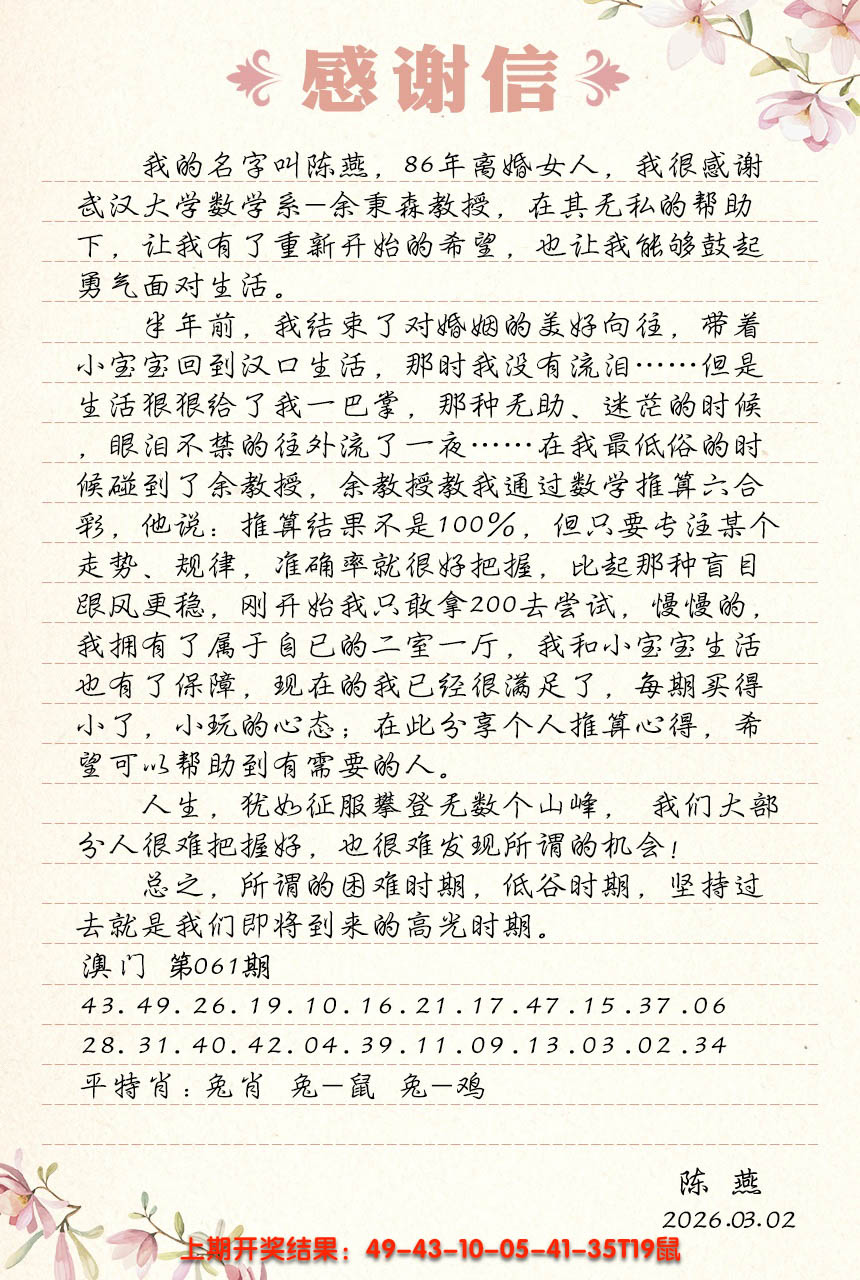 感谢信
我的名字叫陈燕，86年离婚女人，我很感谢
武汉大学数学系-余秉森教授，在其无私的帮助
下，让我有了重新开始的希望，也让我能够鼓起
勇气面对生活。
半年前，我结束了对婚姻的美好向往，带着
小宝宝回到汉口生活，那时我没有流泪……但是
生活狠狠给了我一巴掌，那种无助、迷茫的时候
，眼泪不禁的往外流了一夜……在我最低俗的时
候碰到了余教授，余教授教我通过数学推算六合
彩，他说：推算结果不是100%，但只要专注某个
走势、规律，准确率就很好把握，比起那种盲目
跟风更稳，刚开始我只敢拿200去尝试，慢慢的，
我拥有了属于自己的二室一厅，我和小宝宝生活
也有了保障，现在的我已经很满足了，每期买得
小了，小玩的心态；在此分享个人推算心得，希
望可以帮助到有需要的人。
人生，犹如征服攀登无数个山峰， 我们大部
分人很难把握好，也很难发现所谓的机会！
总之，所谓的困难时期，低谷时期，坚持过
去就是我们即将到来的高光时期。
澳门 第061期
43.49.26.19.10.16.21.17.47.15.37.06
28.31.40.42.04.39.11.09.13.03.02.34
平特肖：兔肖 兔-鼠 兔-鸡
陈 燕
2026.03.02
上期开奖结果：49-43-10-05-41-35T19鼠